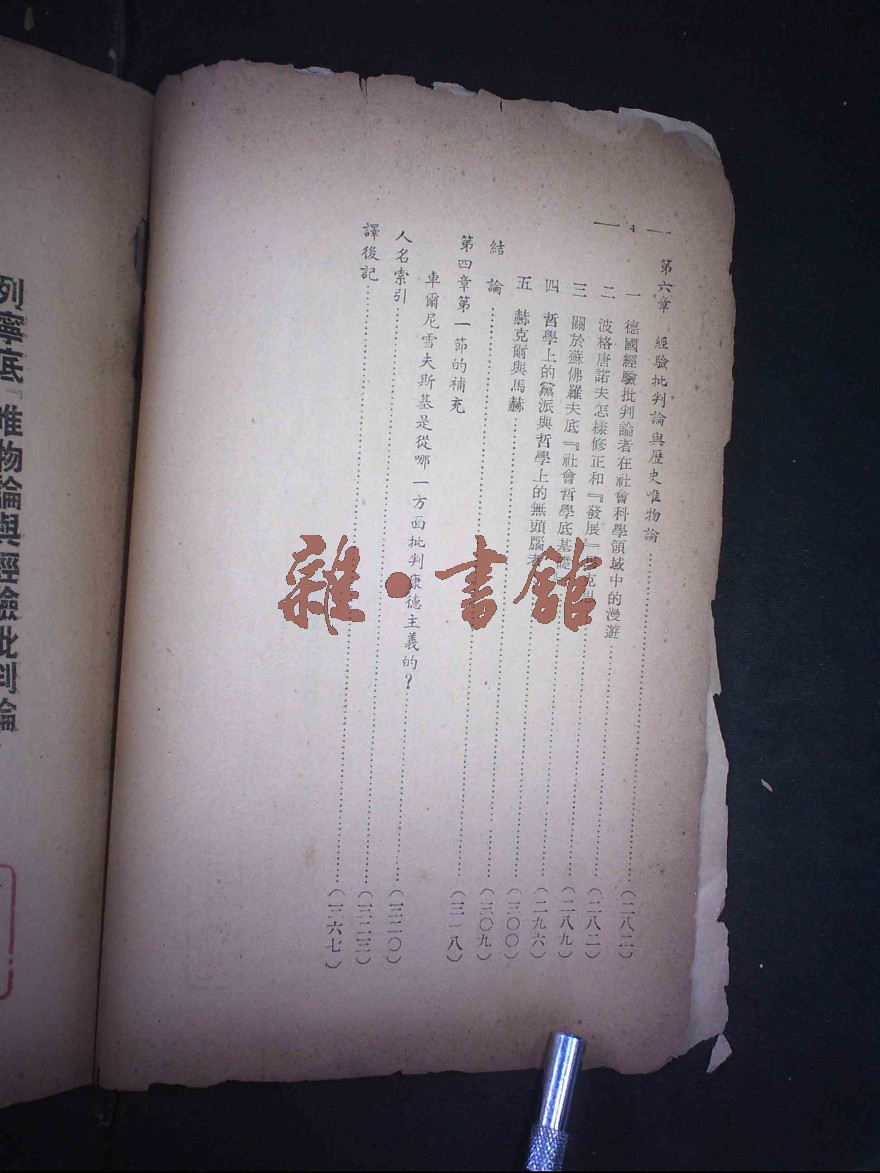 — 4 —
第六章 經驗批判論與歷史唯物論……(二八二)
一 德國經驗批判論者在社會科學領域中的漫遊……(二八二)
二 波格唐諾夫怎樣修正和『發展』克思……(二八九)
三 關於蘇佛羅夫底『社會哲學底基礎……(二九六)
四 哲學上的黨派與哲學上的無頭腦者……(三〇〇)
五 赫克爾與馬赫……(三〇九)
結論……(三一八)
第四章第一節的補充
車爾尼雪夫斯基是從哪一方面批判康德主義的？……(三二〇)
人名索引……(三二三)
譯後記……(三六七)
列寧底『唯物論與經驗批判論
雜·書館